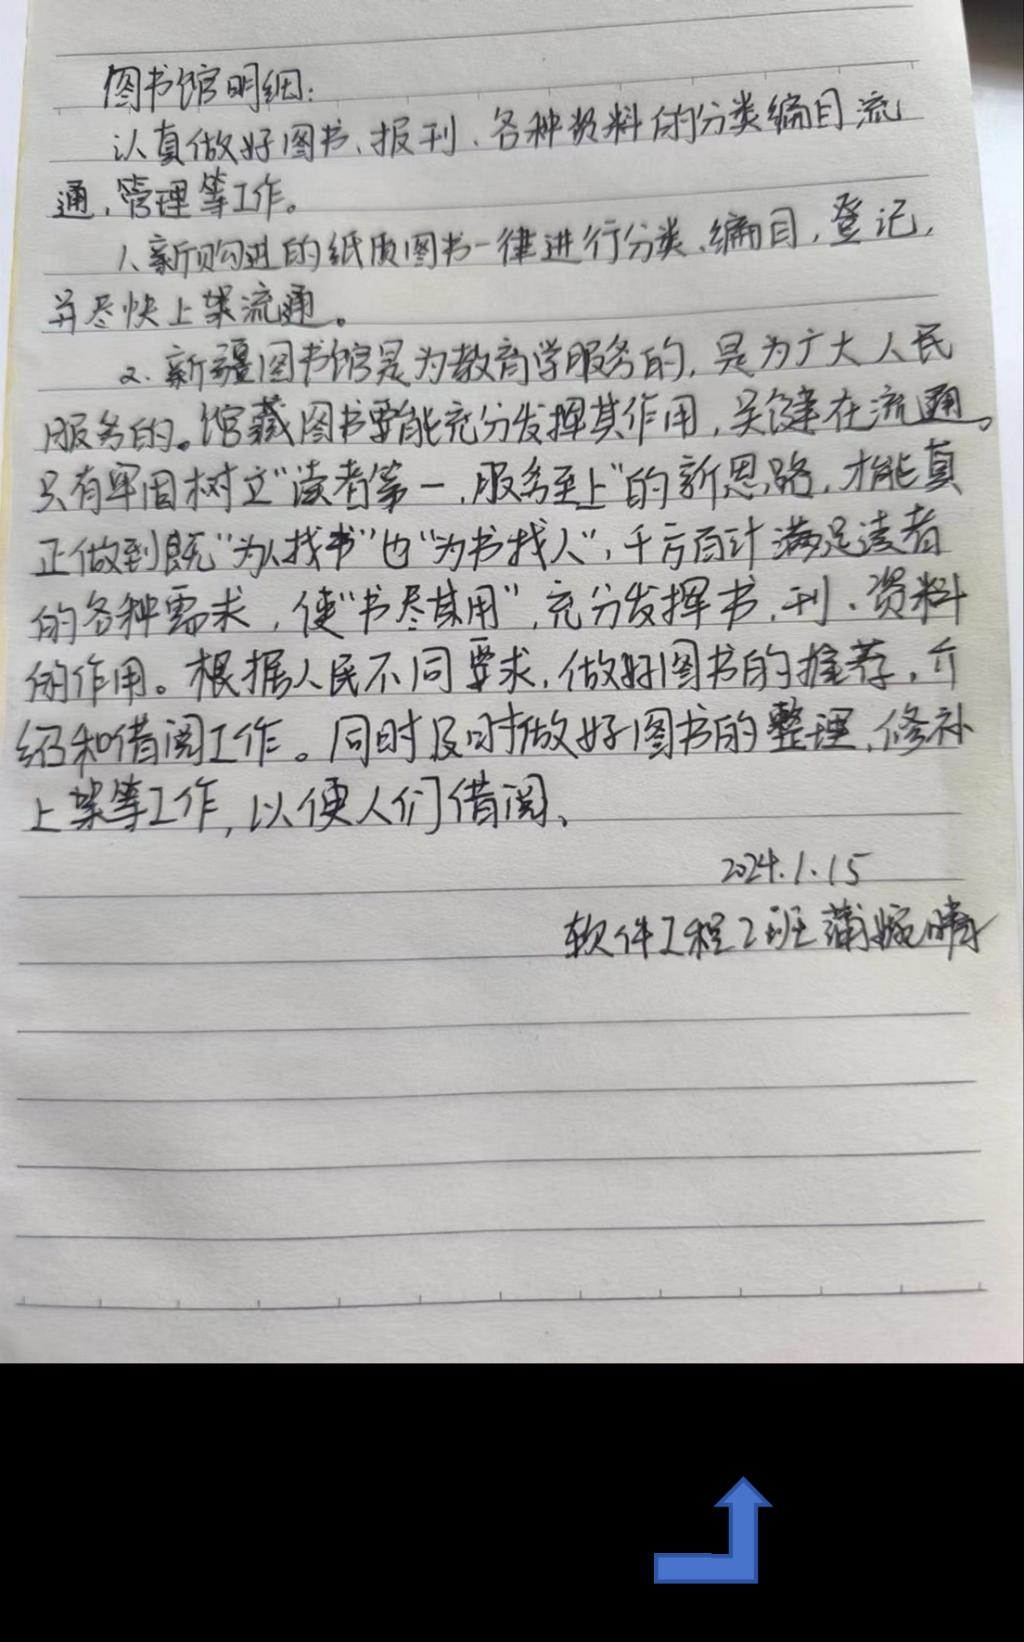 图书馆明细:
认真做好图书、报刊、各种资料的分类编目流
通,管理等工作。
1、新购进的纸质图书一律进行分类、编目,登记,
并尽快上架流通。
2.新疆图书馆是为教育学服务的,是为广大人民
服务的。馆藏图书要能充分发挥其作用,关健在流通。
只有牢固树立"读者第一,服务至上"的新思路,才能真
正做到既"为人找书"也"为书找人",千方百计满足读者
的各种需求,使"书尽其用",充分发挥书、刊、资料
的作用。根据人民不同要求,做好图书的推荐,介
绍和借阅工作。同时及时做好图书的整理、修补
上架等工作,以便人们借阅、
2024.1.15
软件工程2班蒲婉晴